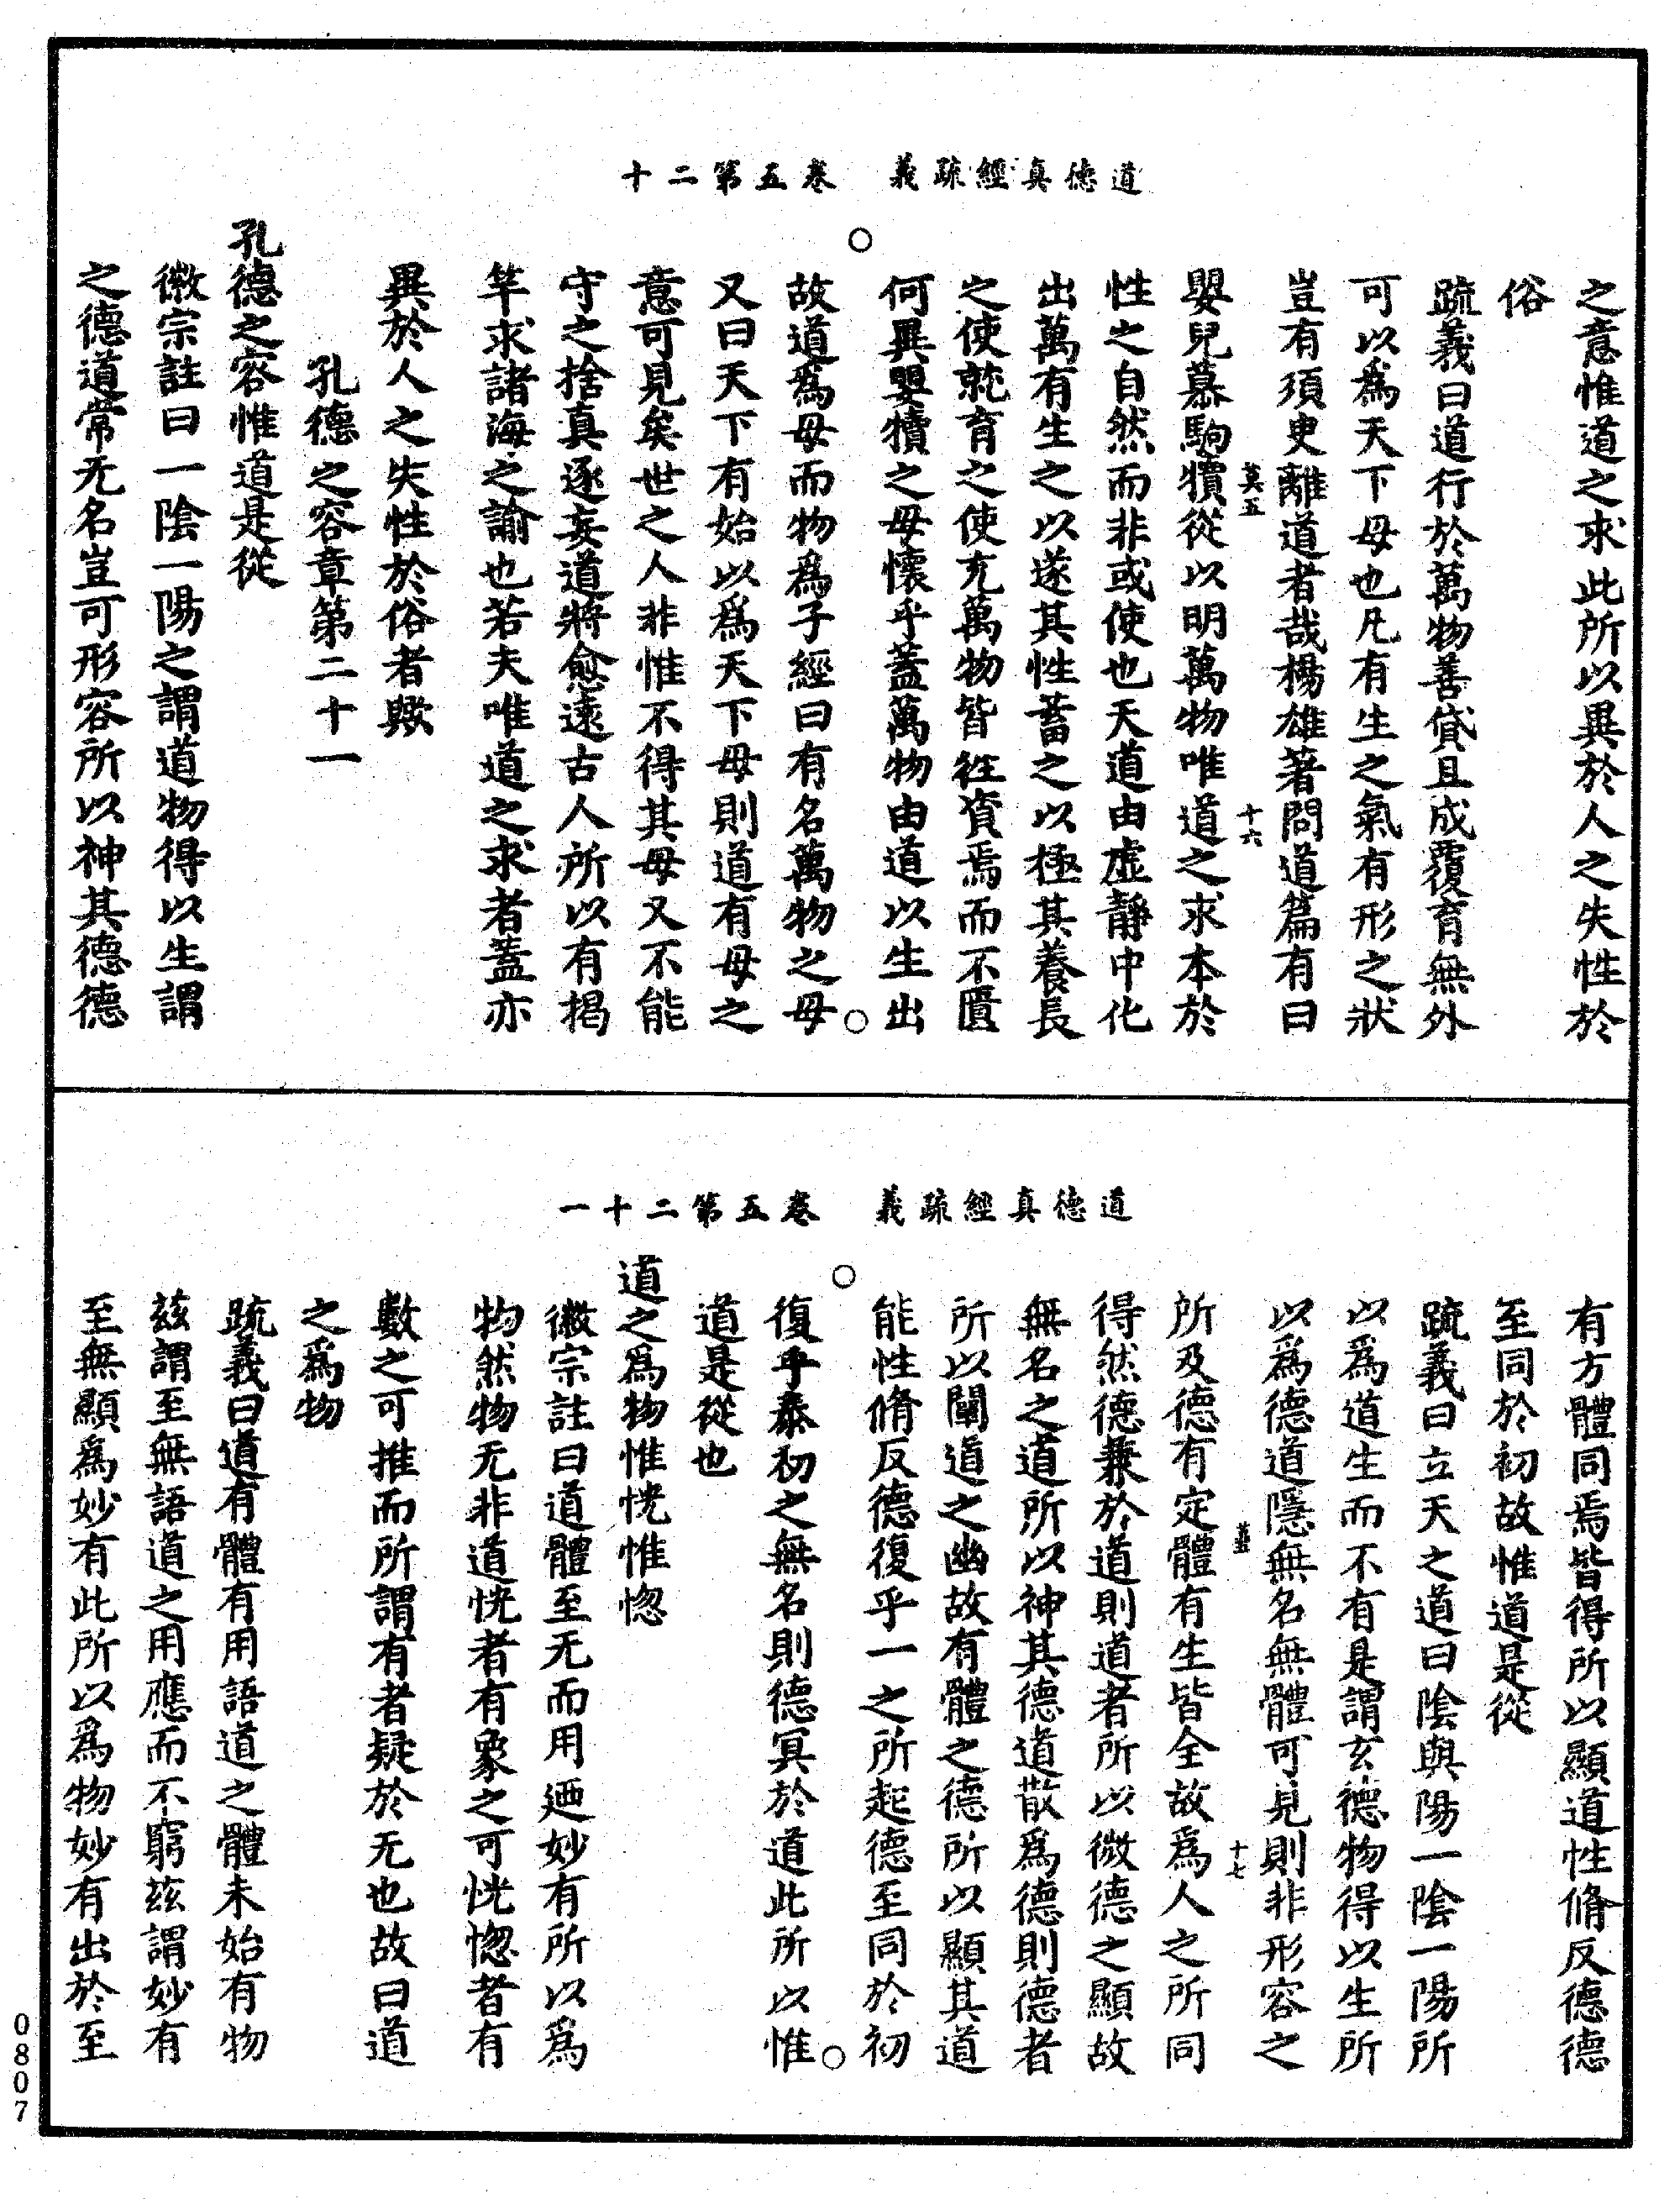 道德真經疏義　卷五第二十
之意惟道之求此所以異於人之失性於
俗
疏義曰道行於萬物善貸且成覆育無外
可以為天下母也凡有生之氣有形之狀
豈有須臾離道者哉楊雄著問道篇有曰
莫五　十六
嬰兒慕駒犢從以明萬物唯道之求本於
性之自然而非或使也天道由虛靜中化
出萬有生之以遂其性蓄之以極其養長
之使就育之使充萬物皆往資焉而不匱
何異嬰犢之母懷乎蓋萬物由道以生出
故道為母而物為子經曰有名萬物之母
又曰天下有始以為天下母則道有母之
意可見矣世之人非惟不得其母又不能
守之捨真逐妄道將愈遠古人所以有揭
竿求諸海之諭也若夫唯道之求者蓋亦
異於人之失性於俗者歟
孔德之容章第二十一
孔德之容惟道是從
徽宗註曰一陰一陽之謂道物得以生謂
之德道常无名豈可形容所以神其德德
道德真經疏義　卷五第二十一
有方體同焉皆得所以顯道性脩反德德
至同於初故惟道是從
疏義曰立天之道曰陰與陽一陰一陽所
以為道生而不有是謂玄德物得以生所
以為德道隱無名無體可見則非形容之
十七
所及德有定體有生皆全故為人之所同
得然德兼於道則道者所以微德之顯故
無名之道所以神其德道散為德則德者
所以闡道之幽故有體之德所以顯其道
能性脩反德復乎一之所起德至同於初
復乎泰初之無名則德冥於道此所以惟
道是從也
道之為物惟恍惟惚
徽宗註曰道體至无而用迺妙有所以為
物然物无非道恍者有象之可恍惚者有
數之可推而所謂有者疑於无也故曰道
之為物
疏義曰道有體有用語道之體未始有物
茲謂至無語道之用應而不窮茲謂妙有
至無顯為妙有此所以為物妙有出於至
0807